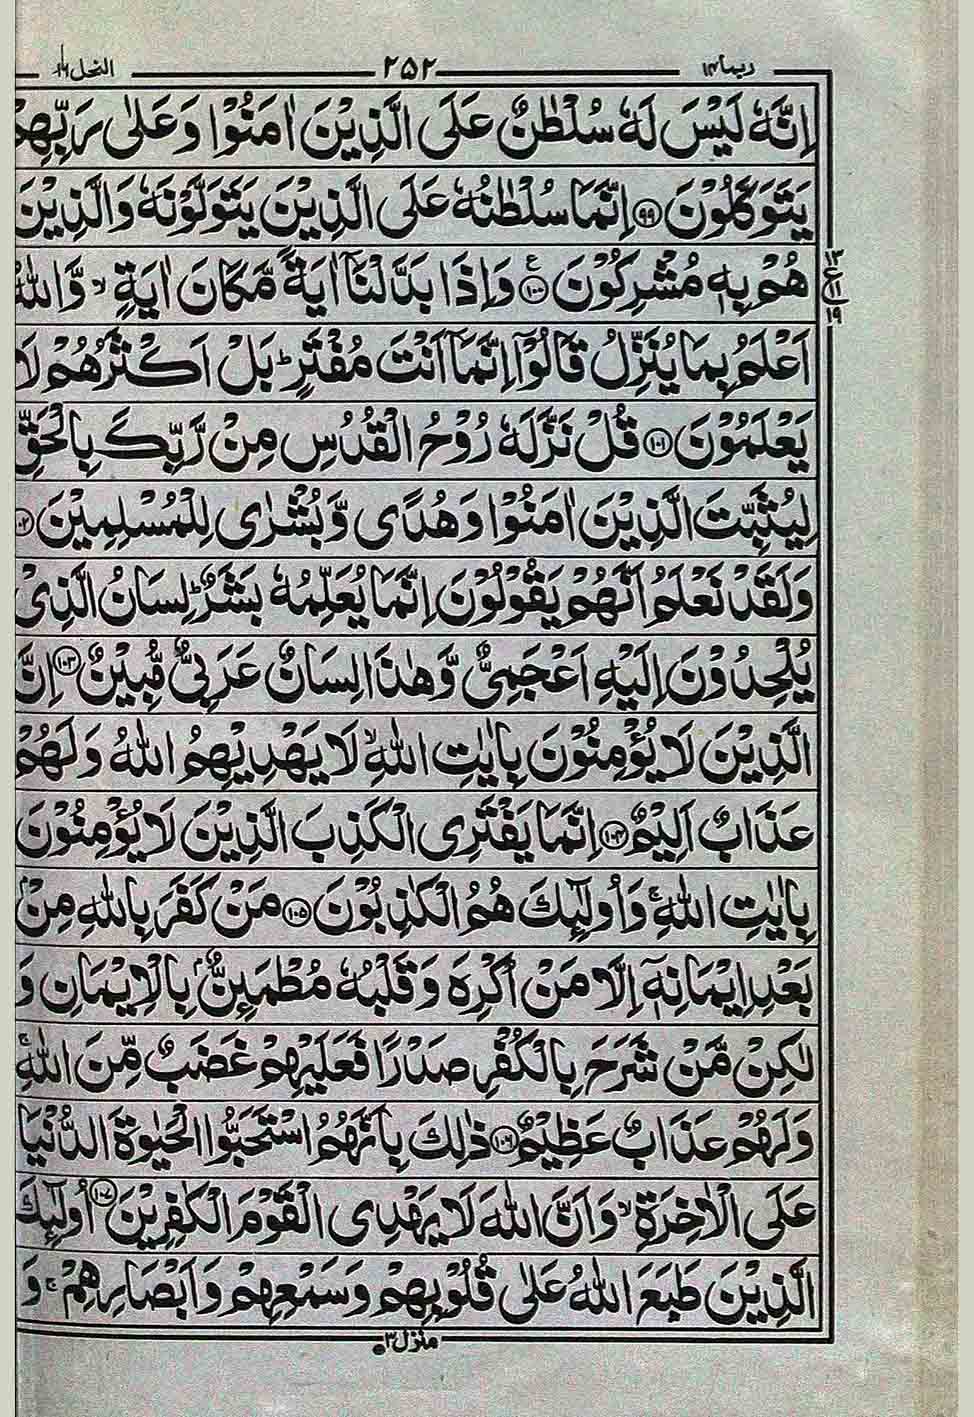 ربما ۱۴ ۲۵۲ النحل ۱۶
اِنَّهٗ لَيْسَ لَهٗ سُلْطٰنٌ عَلَى الَّذِيْنَ اٰمَنُوْا وَعَلٰى رَبِّهِمْ
يَتَوَكَّلُوْنَ ﴿۹۹﴾ اِنَّمَا سُلْطٰنُهٗ عَلَى الَّذِيْنَ يَتَوَلَّوْنَهٗ وَالَّذِيْنَ
هُمْ بِهٖ مُشْرِكُوْنَ ﴿۱۰۰﴾ ع وَاِذَا بَدَّلْنَاۤ اٰيَةً مَّكَانَ اٰيَةٍ ۙ وَّاللّٰهُ
۱۳ ع ۱۱ ۱۹
اَعْلَمُ بِمَا يُنَزِّلُ قَالُوْۤا اِنَّمَاۤ اَنْتَ مُفْتَرٍ ؕ بَلْ اَكْثَرُهُمْ لَا
يَعْلَمُوْنَ ﴿۱۰۱﴾ قُلْ نَزَّلَهٗ رُوْحُ الْقُدُسِ مِنْ رَّبِّكَ بِالْحَقِّ
لِيُثَبِّتَ الَّذِيْنَ اٰمَنُوْا وَهُدًى وَّبُشْرٰى لِلْمُسْلِمِيْنَ ﴿۱۰۲﴾
وَلَقَدْ نَعْلَمُ اَنَّهُمْ يَقُوْلُوْنَ اِنَّمَا يُعَلِّمُهٗ بَشَرٌ ؕ لِسَانُ الَّذِيْ
يُلْحِدُوْنَ اِلَيْهِ اَعْجَمِيٌّ وَّهٰذَا لِسَانٌ عَرَبِيٌّ مُّبِيْنٌ ﴿۱۰۳﴾ اِنَّ
الَّذِيْنَ لَا يُؤْمِنُوْنَ بِاٰيٰتِ اللّٰهِ ۙ لَا يَهْدِيْهِمُ اللّٰهُ وَلَهُمْ
عَذَابٌ اَلِيْمٌ ﴿۱۰۴﴾ اِنَّمَا يَفْتَرِى الْكَذِبَ الَّذِيْنَ لَا يُؤْمِنُوْنَ
بِاٰيٰتِ اللّٰهِ ۚ وَاُولٰٓئِكَ هُمُ الْكٰذِبُوْنَ ﴿۱۰۵﴾ مَنْ كَفَرَ بِاللّٰهِ مِنْۢ
بَعْدِ اِيْمَانِهٖۤ اِلَّا مَنْ اُكْرِهَ وَقَلْبُهٗ مُطْمَئِنٌّۢ بِالْاِيْمَانِ وَ
لٰكِنْ مَّنْ شَرَحَ بِالْكُفْرِ صَدْرًا فَعَلَيْهِمْ غَضَبٌ مِّنَ اللّٰهِ ۚ
وَلَهُمْ عَذَابٌ عَظِيْمٌ ﴿۱۰۶﴾ ذٰلِكَ بِاَنَّهُمُ اسْتَحَبُّوا الْحَيٰوةَ الدُّنْيَا
عَلَى الْاٰخِرَةِ ۙ وَاَنَّ اللّٰهَ لَا يَهْدِى الْقَوْمَ الْكٰفِرِيْنَ ﴿۱۰۷﴾ اُولٰٓئِكَ
الَّذِيْنَ طَبَعَ اللّٰهُ عَلٰى قُلُوْبِهِمْ وَسَمْعِهِمْ وَاَبْصَارِهِمْ ۚ وَ
منزل ۳